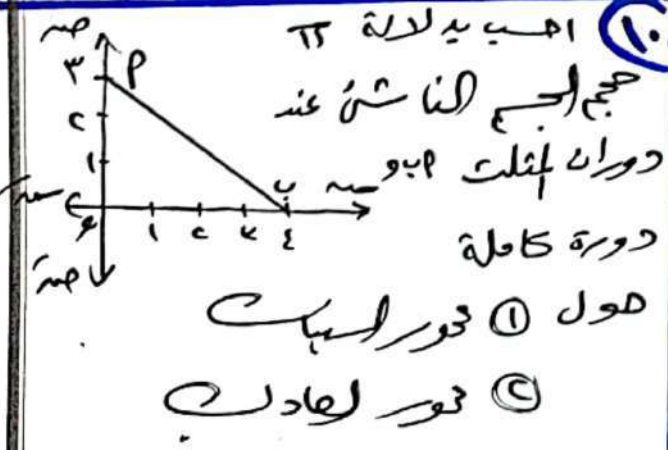 ١٠ احسب بدلالة π
حجم الجسم الناشئ عند
دوران المثلث ٩ ب و
دورة كاملة
حول ① محور السينات
② محور الصادات
صَ
٣ ٩
٢
١
ب س
سَ و ١ ٢ ٣ ٤
صَ